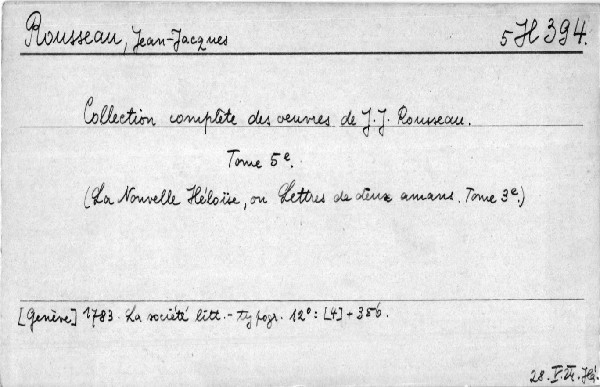 Rousseau, Jean-Jacques 5 H 394.
Collection complète des oeuvres de J. J. Rousseau.
Tome 5e.
(La Nouvelle Héloïse, ou Lettres de deux amans. Tome 3e.)
[Genève] 1783. La société litt.-typogr. 12°: [4] + 356.
28. V.